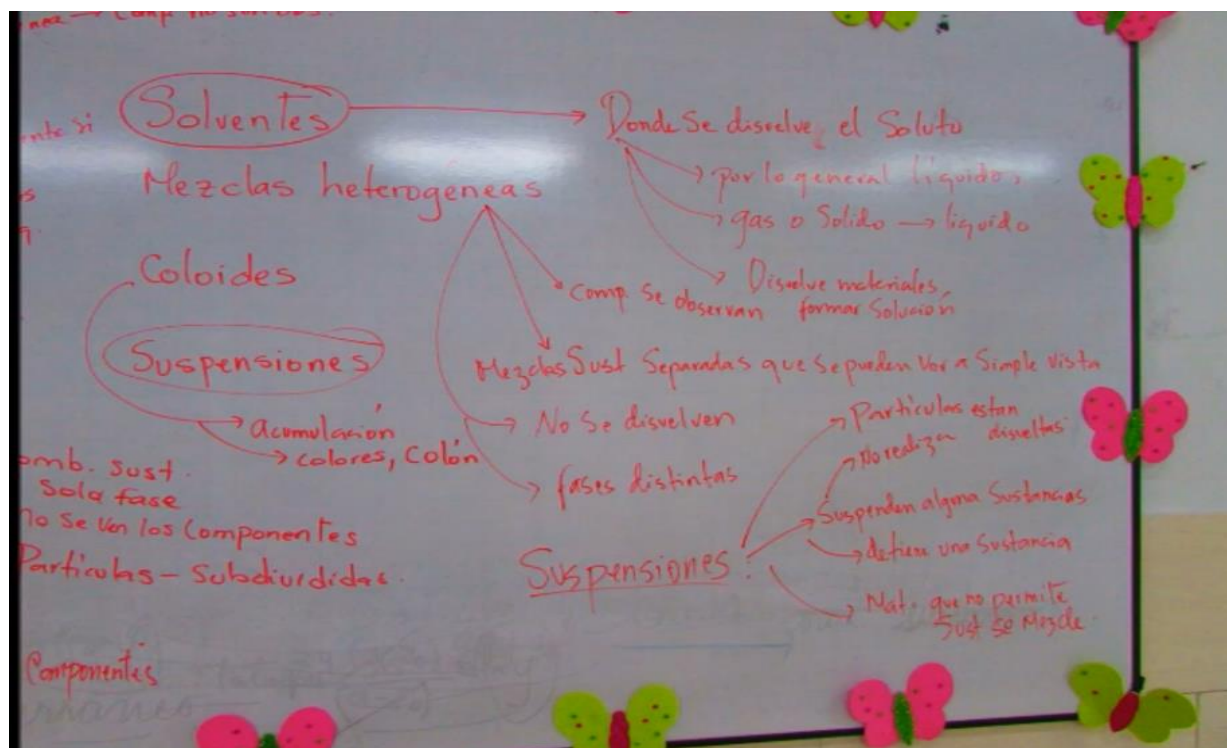 Comp. no
ente si
Solventes
Donde Se disuelve el Soluto
por lo general líquido,
gas o Solido → líquido
Disuelve materiales,
formar Solución
Mezclas heterogéneas
Comp. Se observan
Mezclas Sust Separadas que se pueden Ver a Simple vista
No Se disuelven
fases distintas
Coloides
acumulación
colores, Colón
Suspensiones
omb. sust.
Sola fase
no Se ven los Componentes
Partículas - Subdivididas.
Componentes
Suspensiones:
Partículas estan
disueltas
No realiza
Suspenden alguna Sustancias
detiene una Sustancia
Mat. que no permite
Sust se Mezcle.